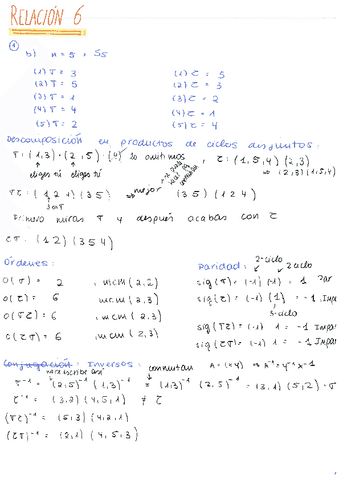 RELACIÓN 6
① b) n = 5 = S5
(1) τ = 3 (1) Σ = 5
(2) τ = 5 (2) Σ = 3
(3) τ = 1 (3) Σ = 2
(4) τ = 4 (4) Σ = 1
(5) τ = 2 (5) Σ = 4
Descomposición en productos de ciclos disjuntos:
τ: (1,3) · (2,5) · (4) lo omitimos, Σ: (1,5,4) (2,3)
⇒ (2,3) (1,5,4)
eliges tú eliges tú
τΣ: (1 2 4) (3 5) → mejor (3 5) (1 2 4)
Primero miras τ y después acabas con Σ
Στ: (1 2) (3 5 4)
Órdenes: Paridad: 2-ciclo 2-ciclo
O(τ) = 2 , mcm (2,2) sig(τ) = (-1) (-1) = 1 Par
O(Σ) = 6 , mcm (2,3) sig(Σ) = (-1) (1) = -1 Impar
3-ciclo
O(τΣ) = 6 , mcm (2,3) sig(τΣ) = (-1) 1 = -1 Impar
O(Στ) = 6 , mcm (2,3) sig(Στ) = (-1) 1 = -1 Impar
Conjugación: Inversos: conmutan A = (xy) ⇒ A⁻¹ = y⁻¹ x⁻¹
τ⁻¹ = (2,5)⁻¹ (1,3)⁻¹ = (1,3)⁻¹ (2,5)⁻¹ = (3,1) (5,2) = τ
Σ⁻¹ = (3,2) (4,5,1) ≠ Σ
(τΣ)⁻¹ = (5,3) (4,2,1)
(Στ)⁻¹ = (2,1) (4,5,3)